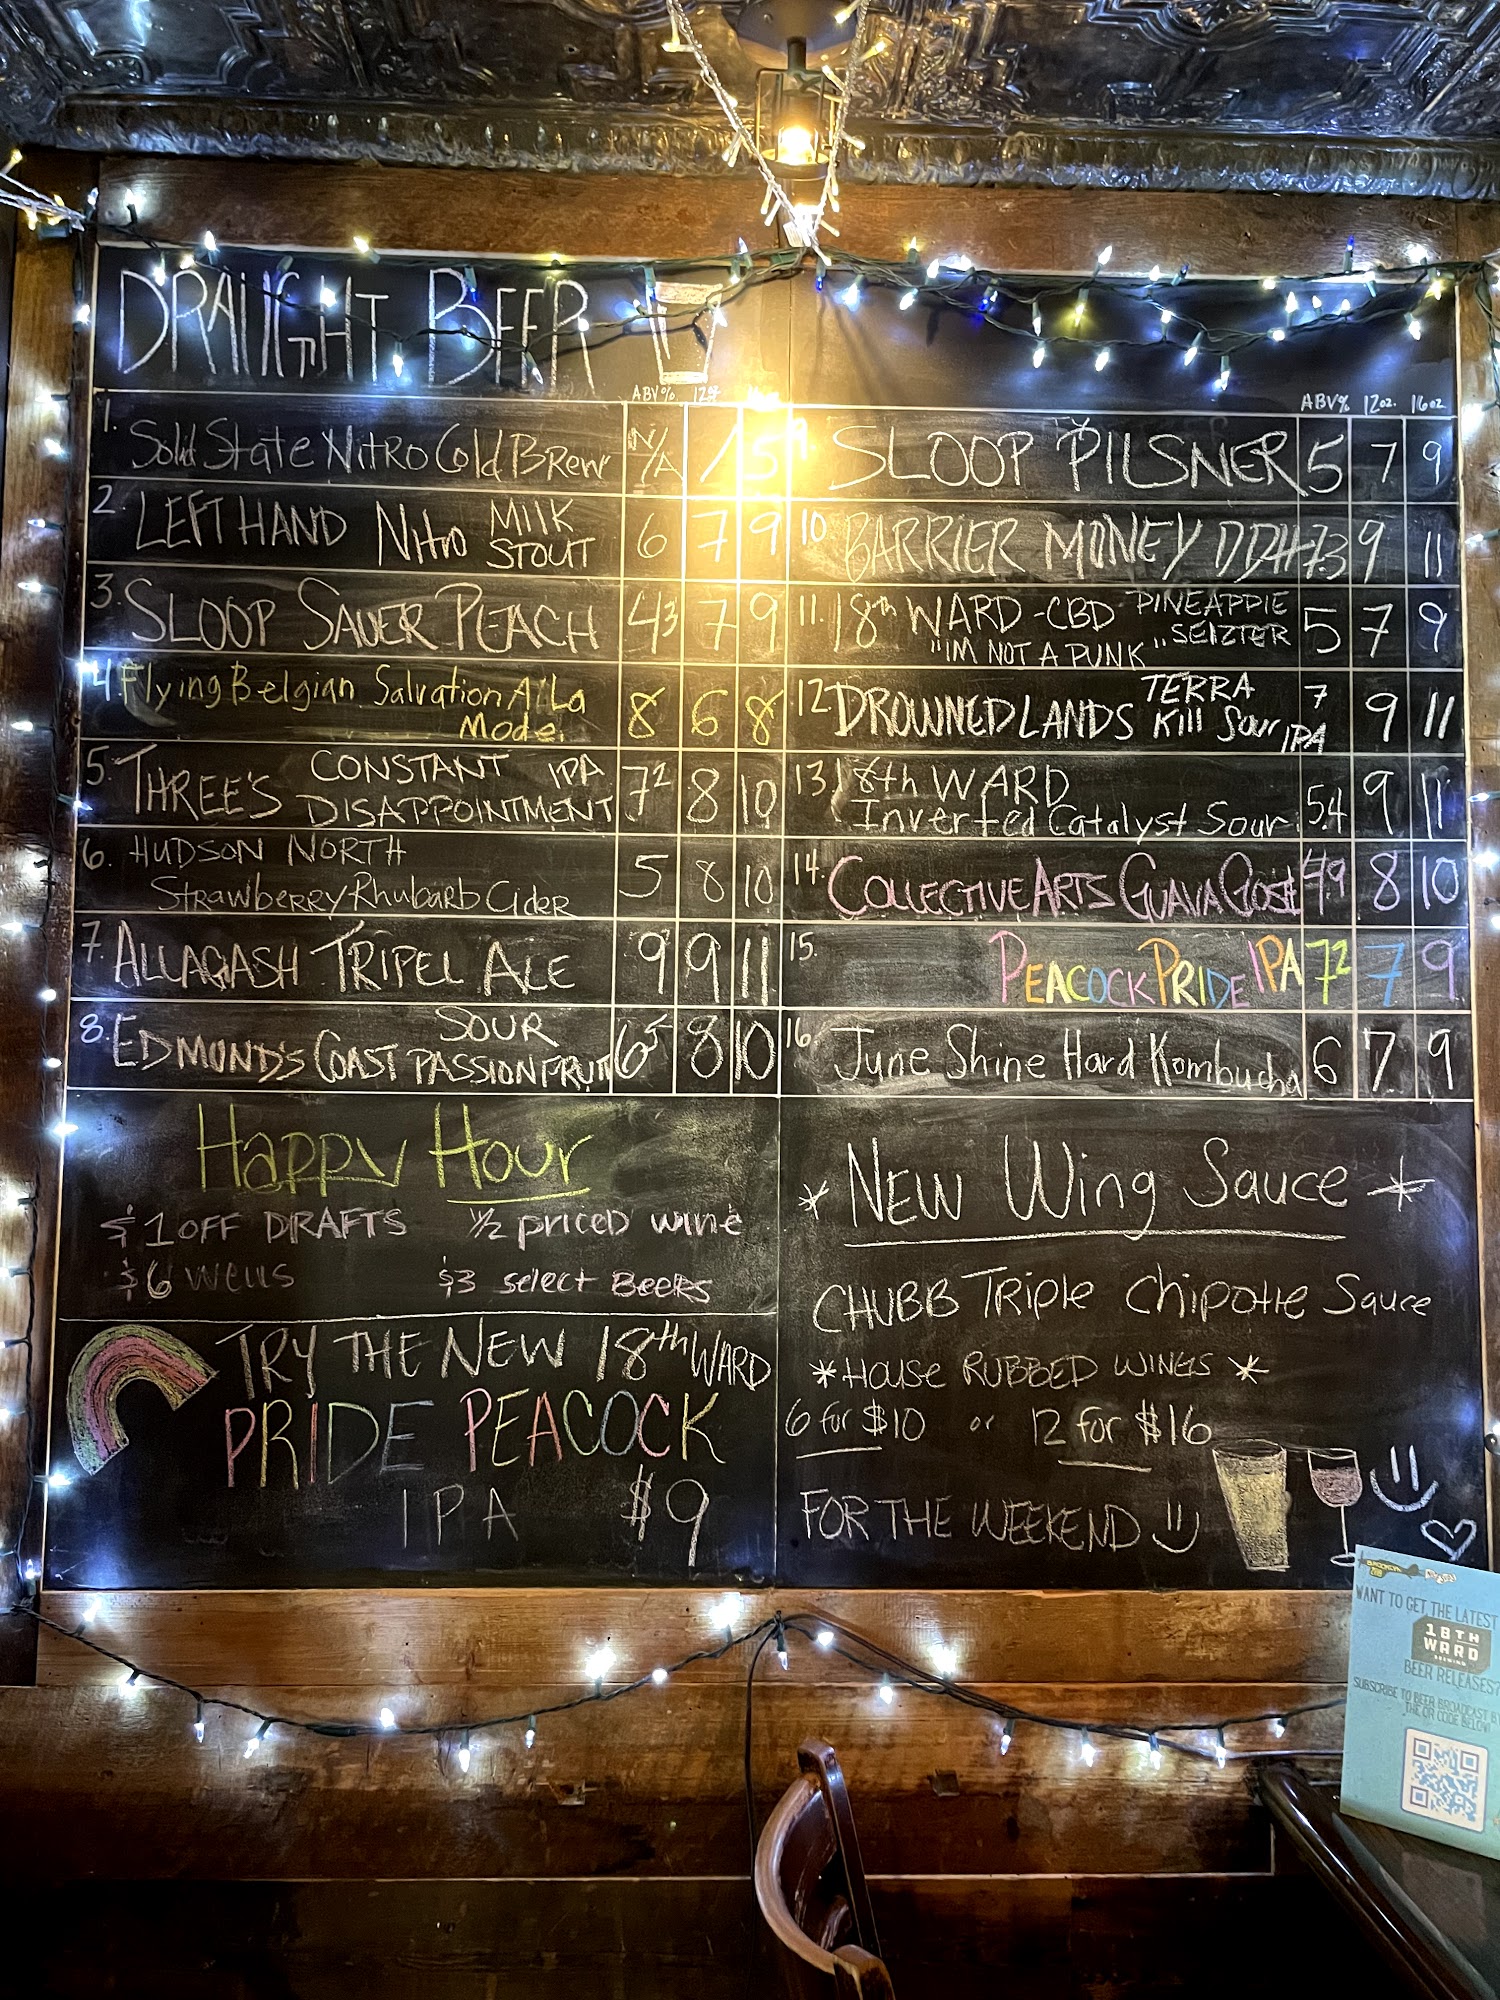 DRAUGHT BEER
ABV% 12oz
1. Solid State Nitro Cold Brew N/A / 5
2. LEFT HAND Nitro MilK STOUT 6 7 9
3. SLOOP SAUER PEACH 4.3 7 9
4. Flying Belgian Salvation A'La
Mode. 8 6 8
5. THREE'S CONSTANT IPA
DISAPPOINTMENT 7.2 8 10
6. HUDSON NORTH
Strawberry Rhubarb Cider 5 8 10
7. ALLAGASH TRIPEL ALE 9 9 11
8. EDMOND'S COAST SOUR
PASSIONFRUIT 6.5 8 10
ABV% 12oz. 16oz.
9. SLOOP PILSNER 5 7 9
10. BARRIER MONEY DDH 7.3 9 11
11. 18th WARD - CBD PINEAPPLE
"IM NOT A PUNK" SELZTER 5 7 9
12. DROWNED LANDS TERRA
Kill Sour IPA 7 9 11
13. 18th WARD
Inverted Catalyst Sour 5.4 9 11
14. COLLECTIVE ARTS GUAVA GOSE 4.9 8 10
15. PEACOCK PRIDE IPA 7.2 7 9
16. June Shine Hard Kombucha 6 7 9
Happy Hour
$1 OFF DRAFTS 1/2 priced wine
$6 wells $3 select Beers
TRY THE NEW 18th WARD
PRIDE PEACOCK
IPA $9
* NEW Wing Sauce *
CHUBB Triple Chipotle Sauce
* House RUBBED WINGS *
6 for $10 or 12 for $16
FOR THE WEEKEND
WANT TO GET THE LATEST
18TH
WARD
BREWING
BEER RELEASES?
SUBSCRIBE TO BEER BROADCAST B
THE QR CODE BELOW!